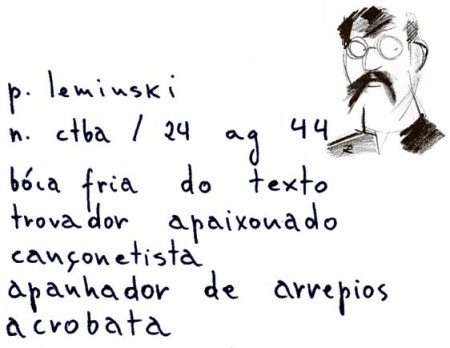 p. leminski
n. ctba / 24 ag 44
bóca fria do texto
trovador apaixonado
cançonetista
apanhador de arrepios
acrobata